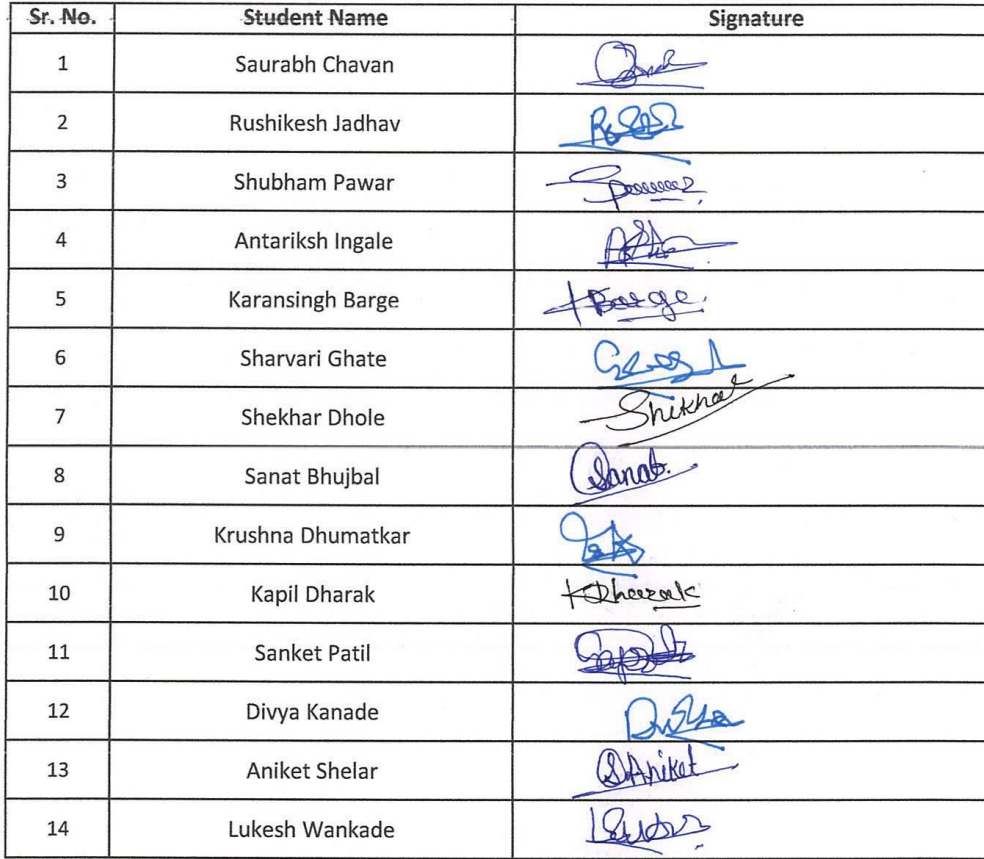 Sr. No. Student Name Signature
1 Saurabh Chavan
2 Rushikesh Jadhav
3 Shubham Pawar
4 Antariksh Ingale
5 Karansingh Barge Barge
6 Sharvari Ghate
7 Shekhar Dhole Shekhar
8 Sanat Bhujbal Sanat
9 Krushna Dhumatkar
10 Kapil Dharak KDharak
11 Sanket Patil
12 Divya Kanade Divya
13 Aniket Shelar SAniket
14 Lukesh Wankade